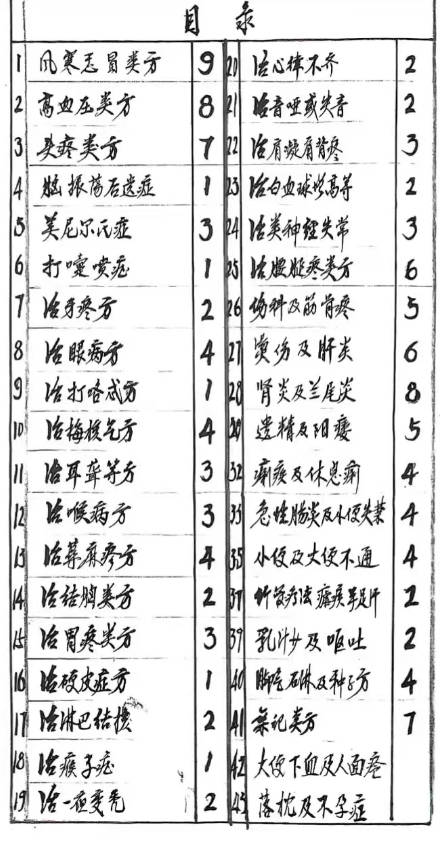 目 录
1 风寒忽冒类方 9
2 高血压类方 8
3 头疼类方 7
4 脑振荡后遗症 1
5 美尼尔氏症 3
6 打嚏喷症 1
7 治牙疼方 2
8 治眼病方 4
9 治打咯忒方 1
10 治梅核气方 4
11 治耳聋等方 3
12 治喉病方 3
13 治荨麻疹方 4
14 治结胸类方 2
15 治胃疼类方 3
16 治硬皮症方 1
17 治淋巴结核 2
18 治瘊子症 1
19 治一夜变秃 2
20 治心律不齐 2
21 治音哑或失音 2
22 治肩凝肩背疼 3
23 治白血球增高等 2
24 治类神经失常 3
25 治腰腿疼类方 6
26 伤科及筋骨疼 5
27 烫伤及肝炎 6
28 肾炎及兰尾炎 8
29 遗精及阳痿 5
32 痢疾及休息痢 4
33 急性肠炎及小便失禁 4
35 小便及大便不通 4
37 竹管疗法 2
39 乳汁少及呕吐 2
40 石淋及种子方 4
41 杂记类方 7
42 大便下血及人面疮
43 落枕及不孕症